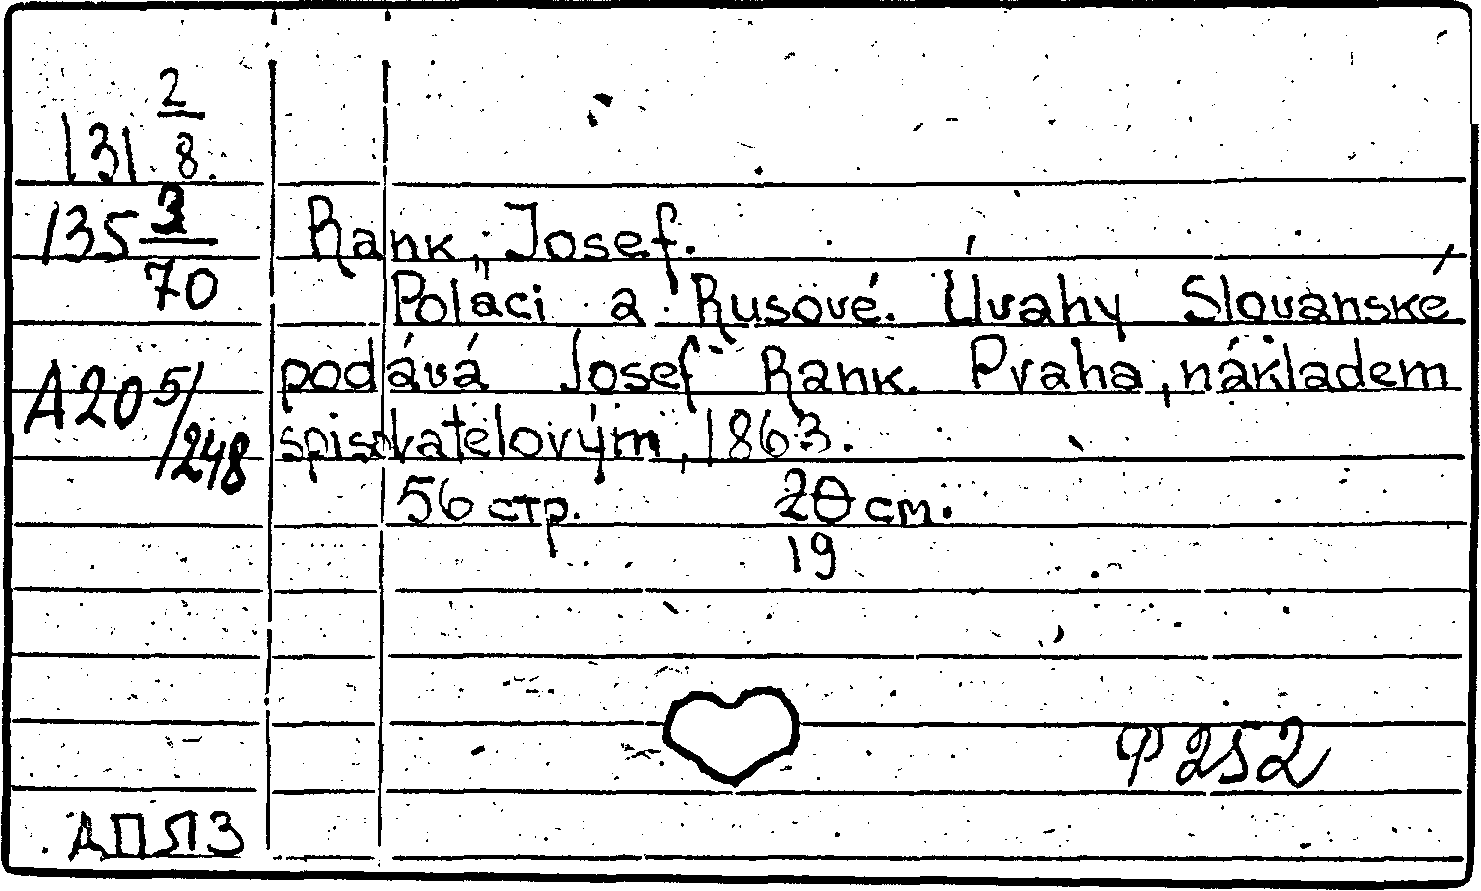 131 2/8.
135 3/70
A20 5/248
Rank, Josef.
Poláci a Rusové. Úvahy Slovanské
podává Josef Rank. Praha, nákladem
spisovatelovým, 1863.
56 стр. 20 см.
19
Р 252